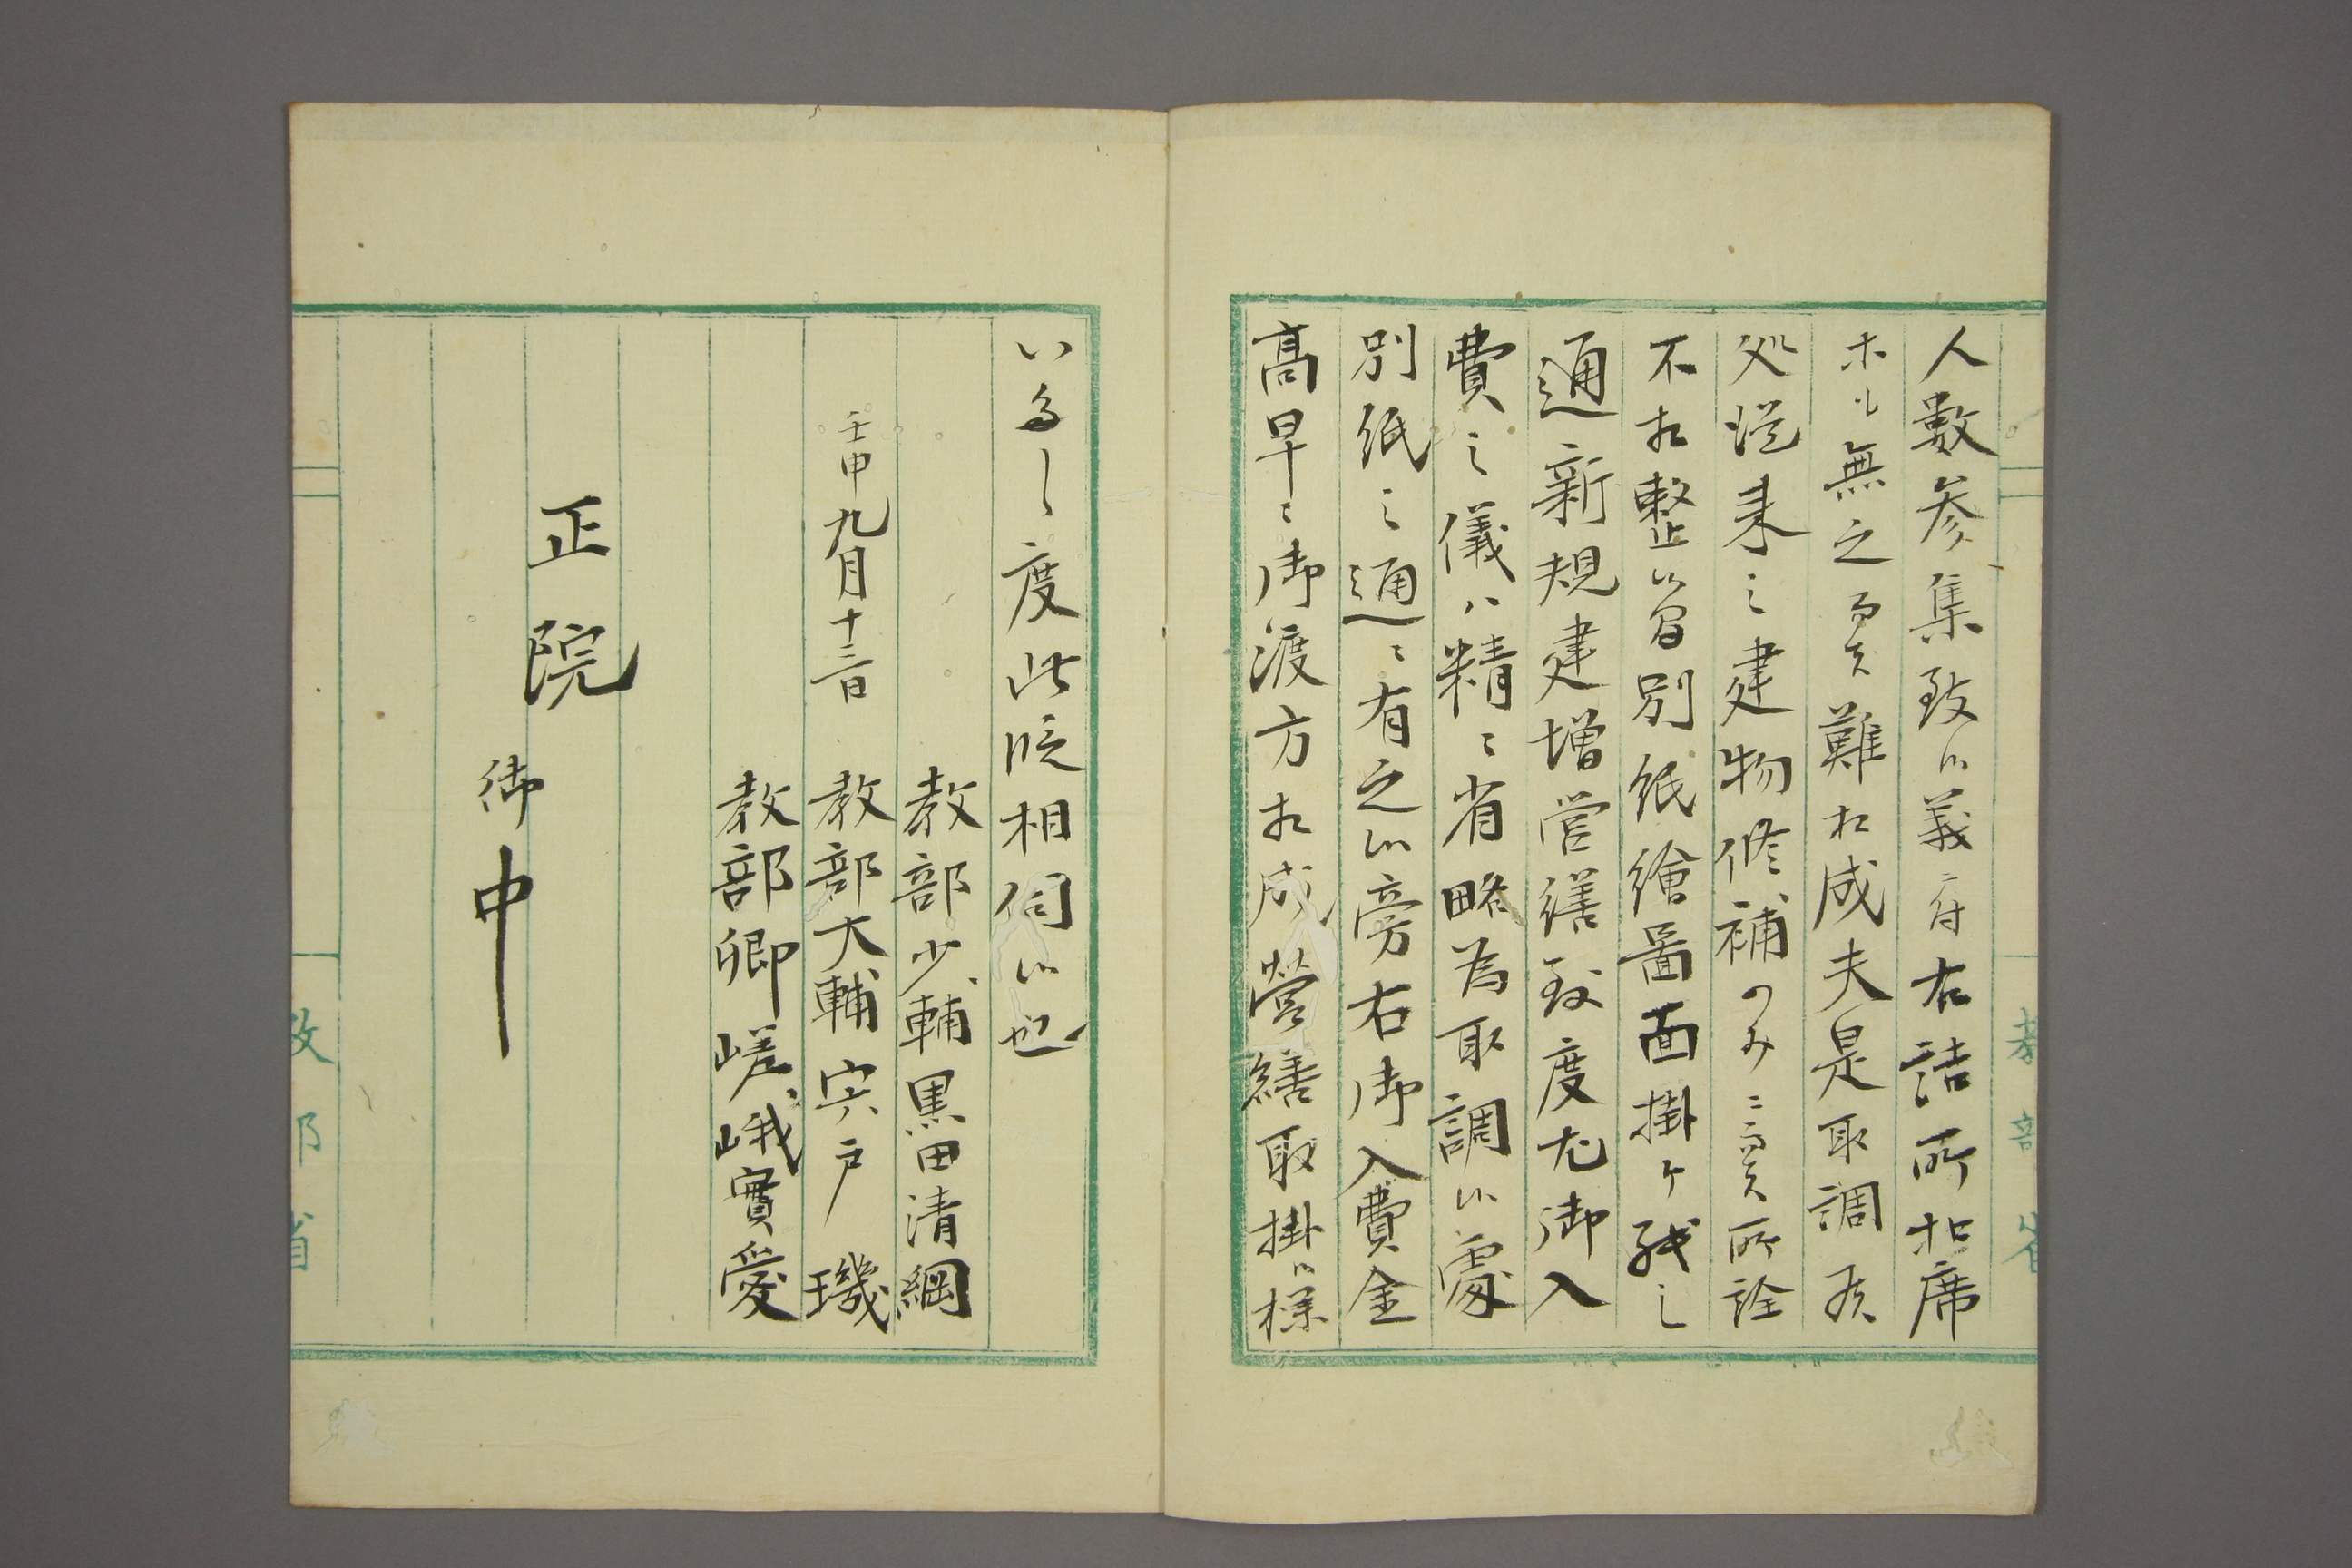 人數参集致候義ニ付右詰所扣席
ホモ無之而ハ難相成夫是取調候
処従来之建物修補のみニ而ハ所詮
不相整候間別紙繪啚面掛ケ紙之
通新規建増営繕致度尤御入
費之儀ハ精々省略為取調候處
別紙之通ニ有之候旁右御入費金
髙早々御渡方相成營繕取掛候様
いたし度此段相伺候也
壬申九月十三日
教部少輔黒田清綱
教部大輔宍戸璣
教部卿嵯峨實愛
正院
御中
教部省